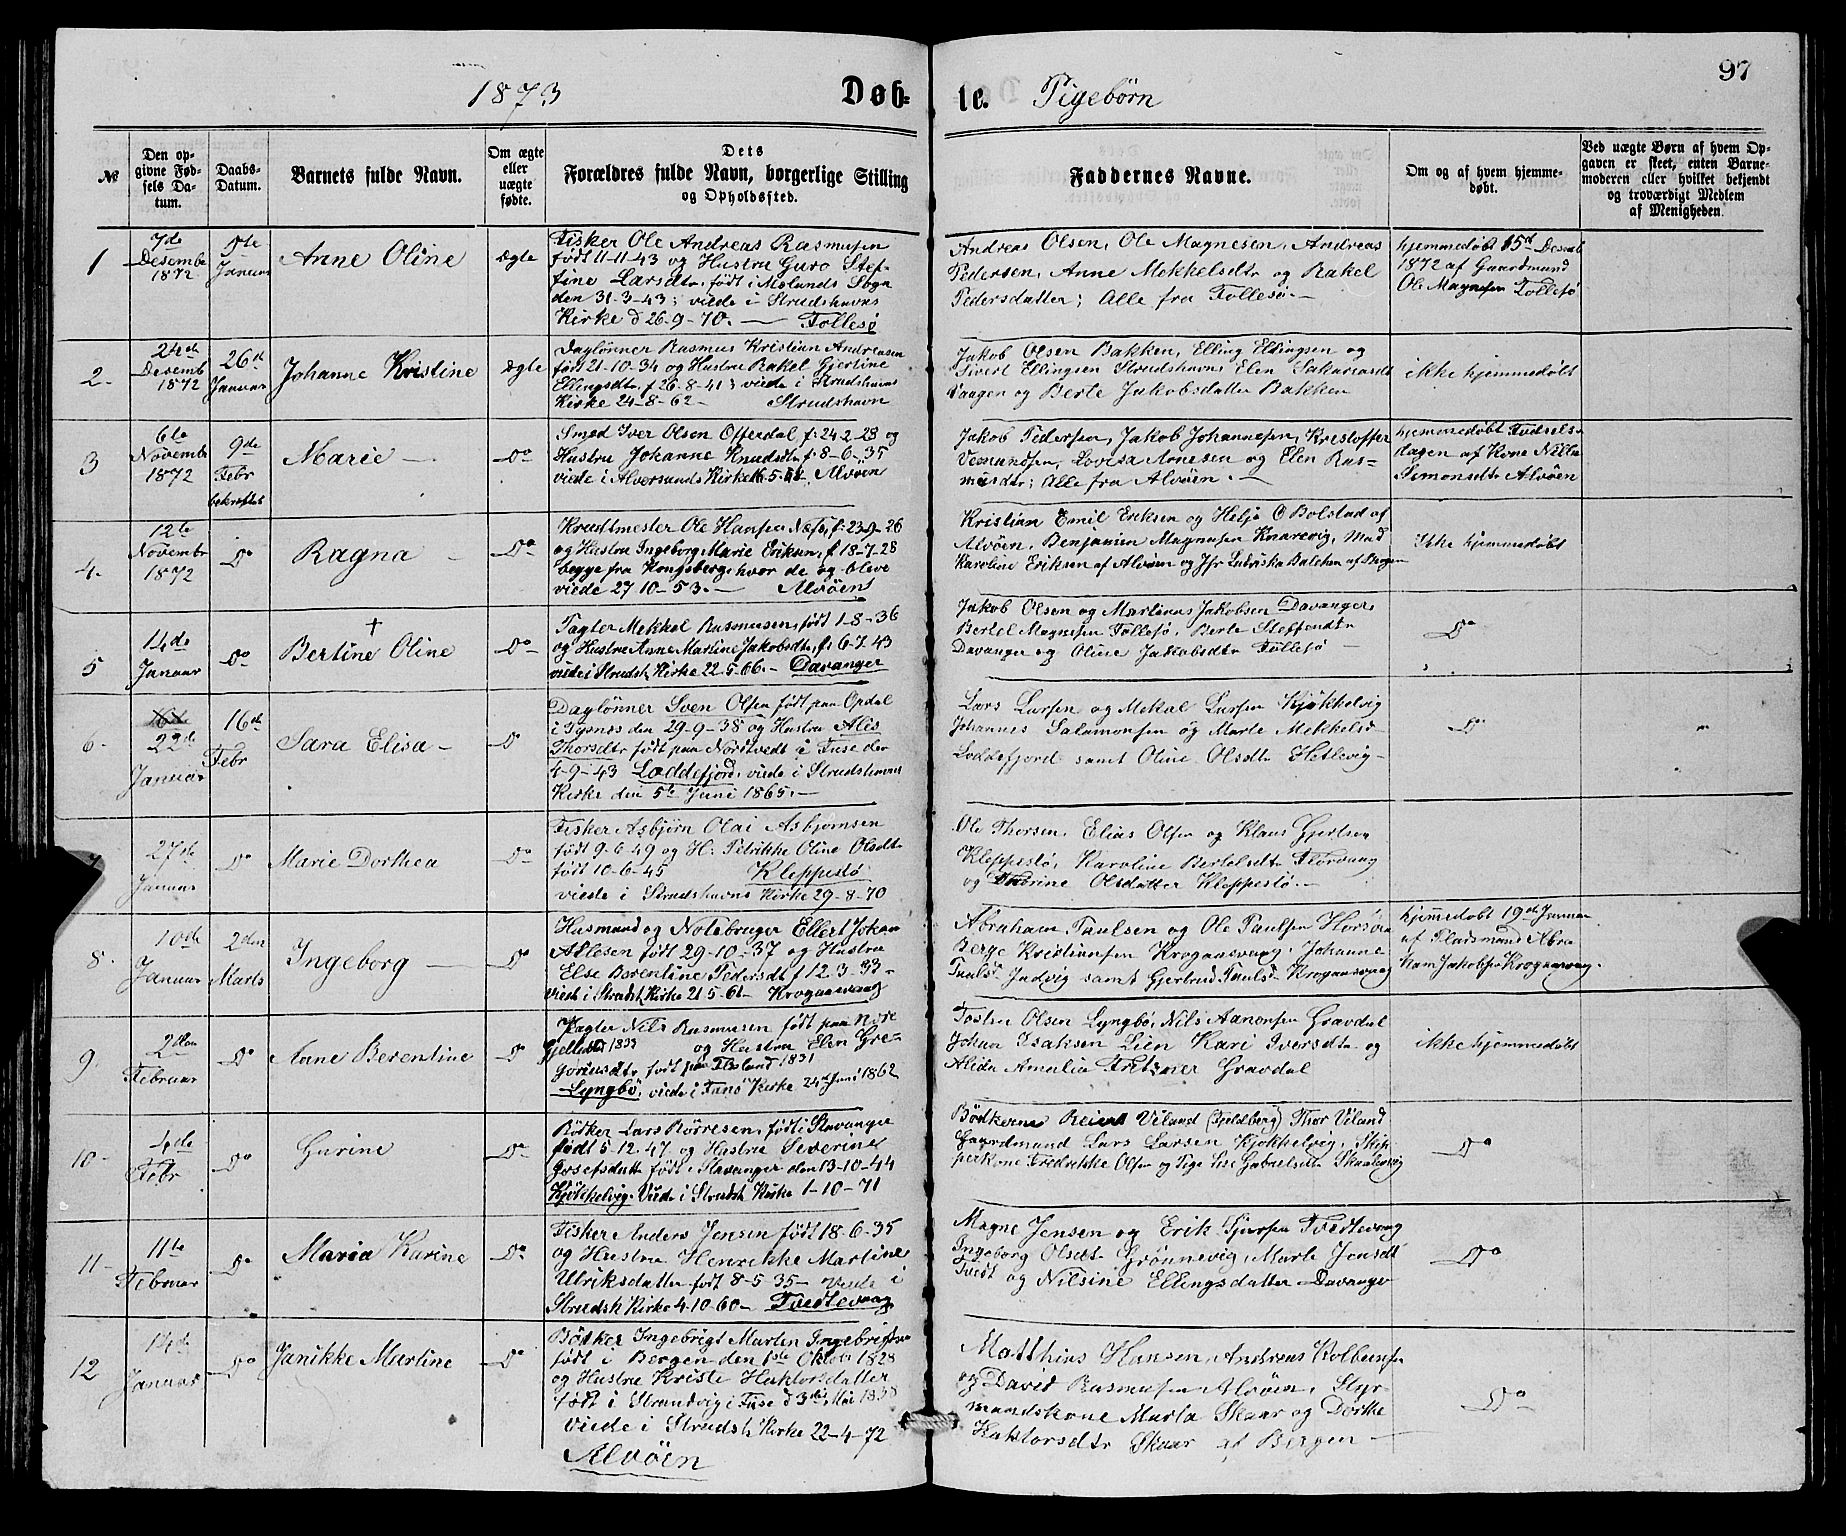 1873
Døb-
te.
Pigebørn
97
№
Den op-
givne Fød-
sels Da-
tum.
Daabs-
Datum.
Barnets fulde Navn.
Om ægte
eller
uægte
fødte.
Dets
Forældres fulde Navn, borgerlige Stilling
og Opholdssted.
Faddernes Navne.
Om og af hvem hjemme-
døbt.
Ved uægte Børn af hvem Op-
gaven er skeet, enten Barne-
moderen eller hvilket bekjendt
og troværdigt Medlem
af Menigheden.
1
7de
Desembr
1872
5te
Januar
Anne Oline
Ægte
Fisker Ole Andreas Rasmusen
født 11-11-43 og Hustru Guro Stef-
fine Larsdtr, født i Mølands Sogn
den 31-3-43; viede i Strudshavns
Kirke d 26-9-70. — Follesø
Andreas Olsen, Ole Magnesen, Andreas
Pedersen, Anne Mekkelsdtr og Rakel
Pedersdatter; Alle fra Follesø.—
hjemmedøbt 15d Desemb
1872 af Gaardmand
Ole Magnesen Follesø
2.
24de
Desemb
1872
26d
Januar
Johanne Kristine
Ægte
Daglønner Rasmus Kristian Andreasen
født 21-10-34 og Hustru Rakel Gjertine
Ellingsdtr, f 26-8-41; viede i Strudshavns
Kirke 24-8-62— Strudshavn
Jakob Olsen Bakken, Elling Ellingsen og
Sivert Ellingsen Strudshavn, Elen Sakariasdt
Vaagen og Berte Jakobsdatter Bakken
ikke hjemmedøbt
3
6te
Novembr
1872
9de
Febr
bekræftet
Marie —
Do
Smed Iver Olsen Offerdal, f: 24-2-28 og
Hustru Johanne Knudsdtr f 8-6-35
viede i Alversunds Kirke 16-5-58, Alvøen
Jakob Pedersen, Jakob Johannesen, Kristoffer
Vemundsen, Lovisa Arnesen og Elen Ras-
musdtr; Alle fra Alvøen. —
hjemmedøbt Fødsels-
dagen af Kone Nille
Simonsdtr Alvøen
4.
12te
Novembr
1872
Do
Ragna —
Do
Krudtmester Ole Hansen Næss, f: 23-9-26
og Hustru Ingeborg Marie Eriksen, f 18-7-28
begge fra Kongsberg, hvor de og bleve
viede 27-10-53. — Alvøen
Kristian Emil Eriksen og Helje O Bolstad af
Alvøen, Benjamin Magnusen Knarevig, Mad
Karoline Eriksen af Alvøen og Jfr Ludviska Balchen af Bergen
Ikke hjemmedøbt
5
14de
Januar
Do
†
Bertine Oline
Do
Pagter Mekkel Rasmusen, født 1-8-36
og Hustru Anne Martine Jakobsdtr, f: 6-7-43
viede i Strudsh Kirke 22-5-66.— Davanger
Jakob Olsen og Martinus Jakobsen Davanger,
Bertel Magnesen Follesø, Berte Steffensdtr
Davanger og Oline Jakobsdtr Follesø —
Do
6.
16de
22de
Januar
16de
Febr
Sara Elisa —
Do
Daglønner Sven Olsen født paa Opdal
i Tysnes den 29-9-38 og Hustru Alis
Thorsdtr født paa Nordtvedt i Fuse den
4-9-43 Loddefjord, viede i Strudshavns
Kirke den 5te Juni 1865. —
Lars Larsen og Mekal Larsen Kjøkkelvig
Johannes Salamonsen og Marte Mekkelsd
Loddefjord samt Oline Olsdtr Hetlevig—
Do
7
27de
Januar
Do
Marie Dorthea
Do
Fisker Asbjørn Olai Asbjørnsen
født 9-6-49 og H: Petrikke Oline Olsdtr
født 10-6-45 Kleppestø
viede i Strudshavns Kirke 29-8-70
Ole Thorsen, Elias Olsen og Klaus Gjertsen
Kleppestø, Karoline Bertelsdtr Florvaag
og Katrine Olsdatter Kleppestø.—
8.
10de
Januar
2den
Marts
Ingeborg —
Do
Husmand og Notebruger Ellert Johan
Atlesen født 29-10-37 og Hustru
Else Berentine Pedersdt f 12-3-33-
viede i Strudsh Kirke 21-5-61- Krogaasvaag
Abraham Paulsen og Ole Paulsen Horsøen
Berge Kristiansen Krogaasvaag, Johanne
Paulsd Judvig samt Gjertrud Paulsd Krogaasvaag
hjemmedøbt 19de Januar
af Pladsmand Abra
ham Jakobsen Krogaasvaag.
9.
2den
Februar
Do
Anne Berentine
Do
Pagter Nils Rasmusen født paa Nore
Gjellestad 1833 og Hustru Elen Gre-
goriusdtr født paa Flesland 1831
Lyngbø, viede i Fane Kirke 24de Juni 1862
Tosten Olsen Lyngbø, Nils Aanensen Gravdal
Johan Isaksen Lien Kari Iversdtr og
Alida Amalia Fritzner Gravdal
ikke hjemmedøbt
10-
4de
Febr
Do
Gurine
Do
Bødker Lars Børresen, født i Stavanger
født 5-12-47 og Hustru Severine
Josefsdatter født i Stavanger den 13-10-44
Kjøkkelvig. Viede i Strudsh Kirke 1-10-71
Bødkerne Reier Viland (Fjeldberg) Thor Viland
Gaardmand Lars Larsen Kjøkkelvig, Skip-
perkone Fredrikke Olsen og Pige Lise Gabrielsdtr Skaalevig
Do
11-
11te
Februar
Do
Maria Karine
Do
Fisker Anders Jensen født 18-6-35
og Hustru Henrikke Martine
Ulriksdatter født 8-5-35— Viede i
Strudsh Kirke 4-10-60- Tvedtevaag
Magne Jensen og Erik Sjursen Tvedtevaag
Ingeborg Olsdt Grønnevig, Marte Jensdt
Tvedt og Nilsine Ellingsdatter Davanger
Do
12
14de
Januar
Do
Janikke Martine
Do
Bødker Ingebrigt Martin Ingebrigtsen
født i Bergen den 1ste Oktobr 1828
og Hustru Kristi Haktorsdatter
født i Strandvig i Fuse d 3die Mai 1838
Viede i Strudsh Kirke 22-4-72
Alvøen
Matthias Hansen, Andreas Kolbensen
og David Rasmusen Alvøen, Styr-
mandskone Marta Skaar og Dorthe
Haktorsdtr Skaar af Bergen —
Do